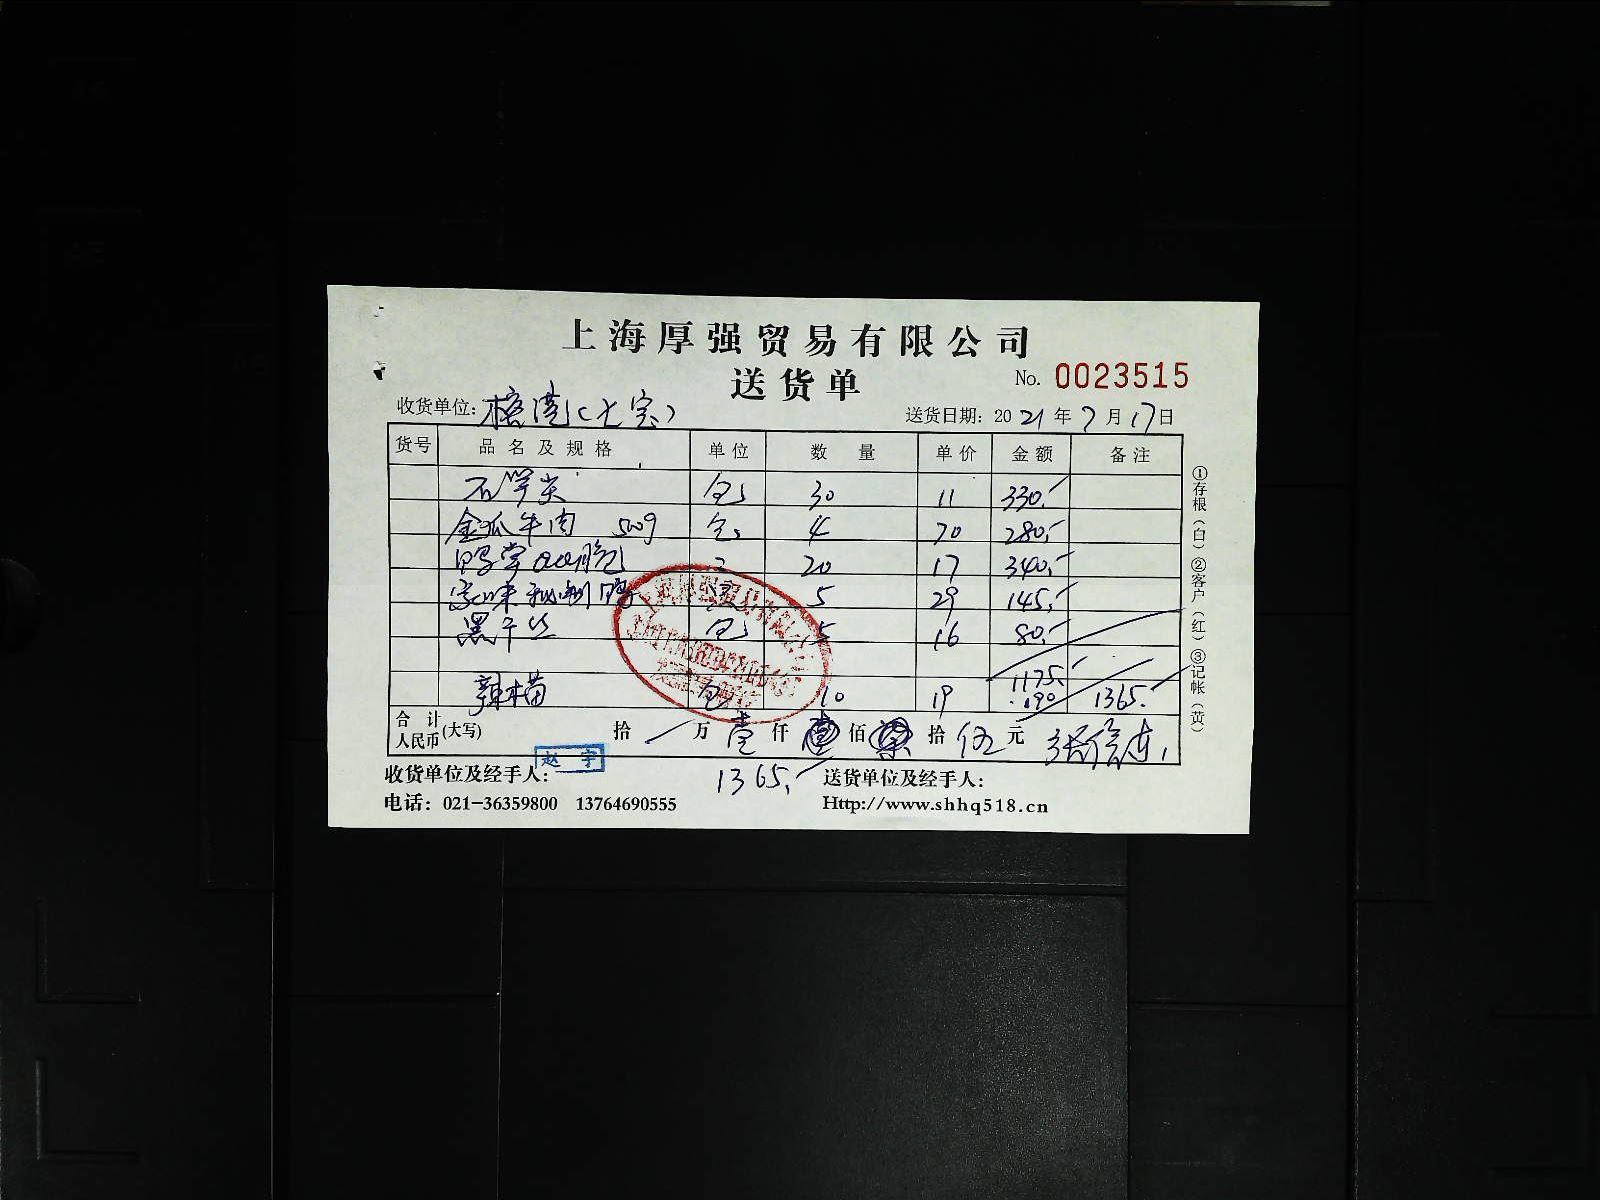 上海厚强贸易有限公司
送货单
No. 0023515
收货单位: (七宝) 送货日期: 2021年7月17日
货号 品名及规格 单位 数量 单价 金额 备注
石笋尖 包 30 11 330.
金狐牛肉 500g 包 4 70 280.
鸭掌 20 17 340.
5 29 145.
黑干丝 包 5 16 80.
1175.
包 10 19 190 1365.
合计人民币(大写) 拾 万 壹 仟 佰 拾 伍 元
赵宇
收货单位及经手人: 1365. 送货单位及经手人:
电话: 021-36359800 13764690555 Http://www.shhq518.cn
①存根(白)②客户(红)③记帐(黄)